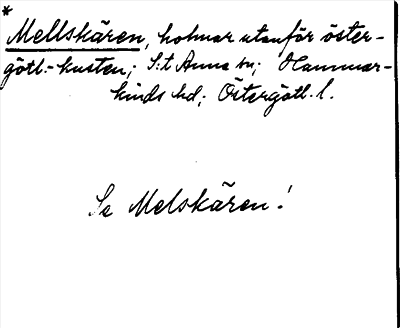 *
Mellskären, holmar utanför öster-
götl.-kusten; S:t Anna sn; Hammar-
kinds hd; Östergötl. l.
Se Melskären!